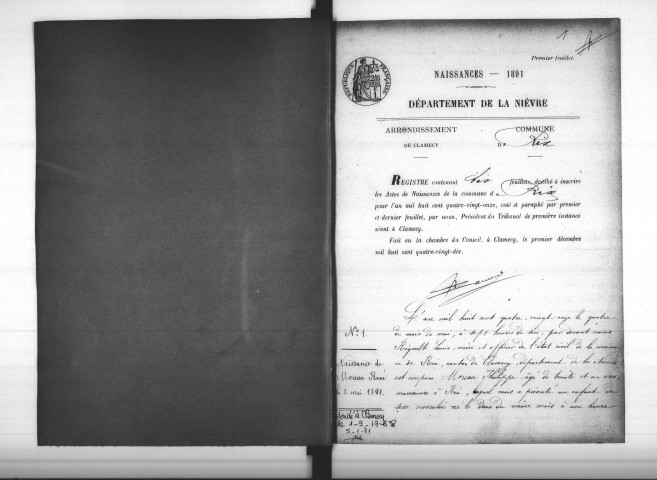 1
Premier feuillet.
RÉPUBLIQUE FRANÇAISE
NAISSANCES — 1891
DÉPARTEMENT DE LA NIÈVRE
ARRONDISSEMENT
DE CLAMECY
COMMUNE
D Rix
REGISTRE contenant dix feuillets, destiné à inscrire
les Actes de Naissances de la commune d Rix
pour l'an mil huit cent quatre-vingt-onze, coté et paraphé par premier
et dernier feuillet, par nous, Président du Tribunal de première instance
séant à Clamecy.
Fait en la chambre du Conseil, à Clamecy, le premier décembre
mil huit cent quatre-vingt-dix.
N° 1.
Naissance de
Moreau René
le 2 mai 1891.
L'an mil huit cent quatre-vingt onze le quatre
du mois de mai, à sept heures du soir, par devant nous
Rigault Louis, maire et officier de l'état civil de la commu
ne de Rix, canton de Clamecy département de la Nièvre
est comparu Moreau Philippe âgé de trente et un ans
manœuvre à Rix, lequel nous a présenté un enfant du
sexe masculin né le deux du même mois à une heure
à Clamecy
le 1-9-19